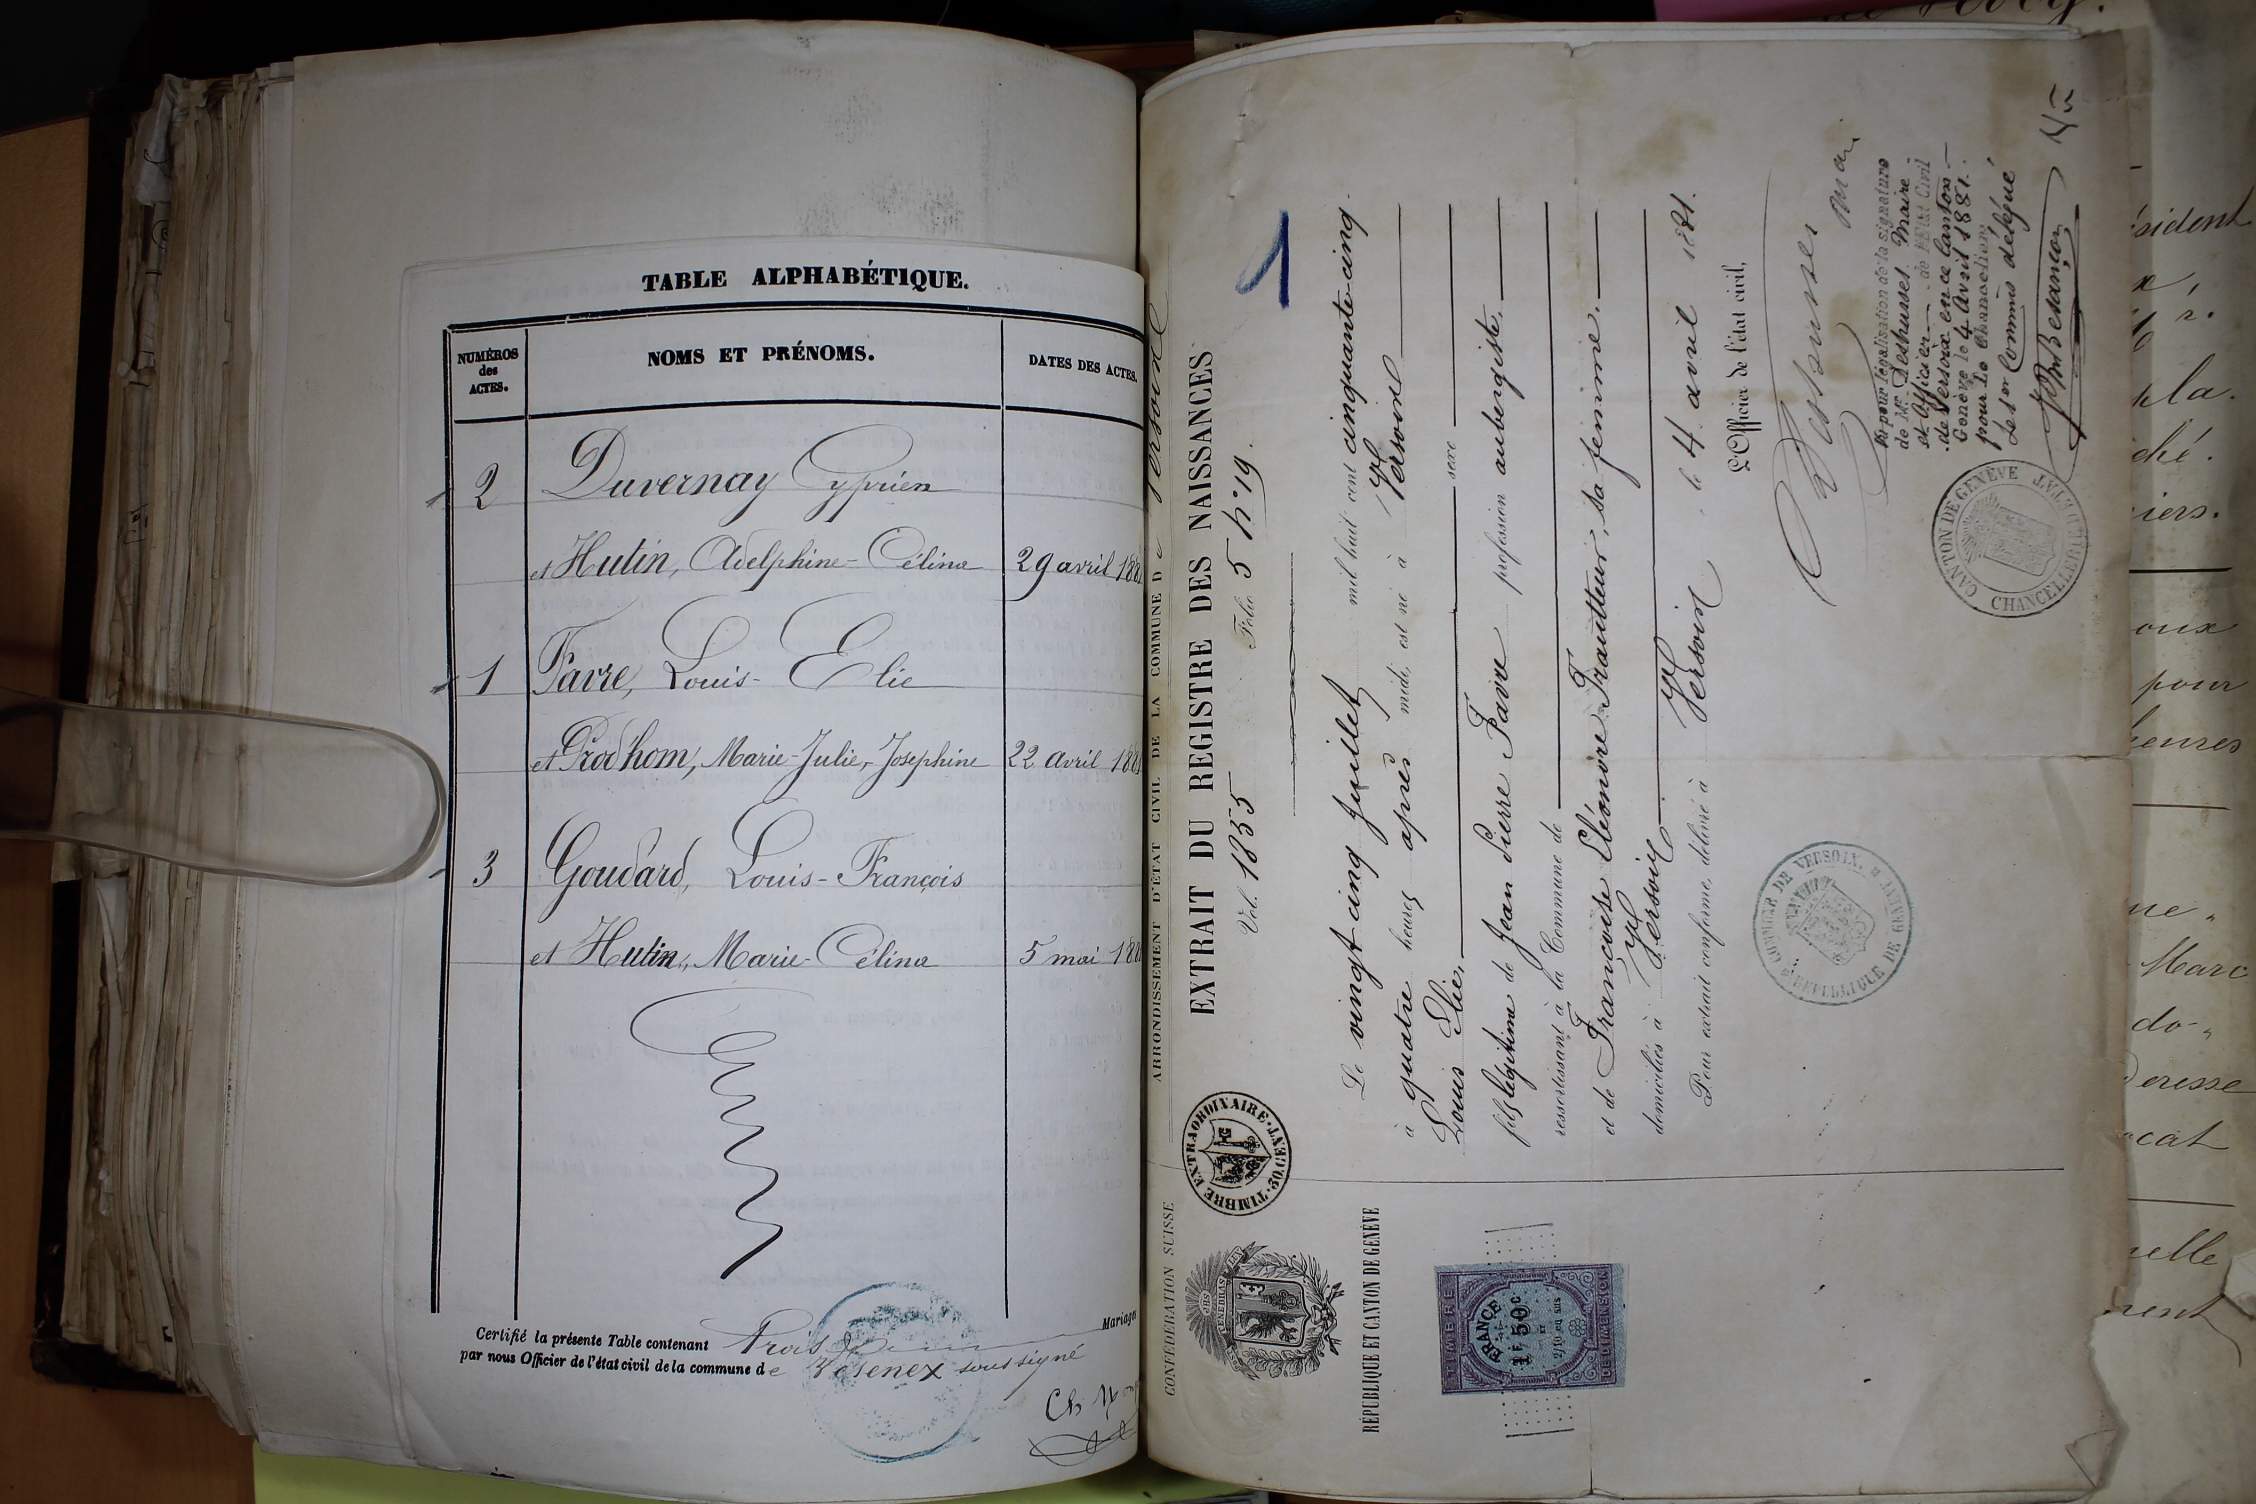 TABLE ALPHABÉTIQUE.
NUMÉROS des ACTES.
NOMS ET PRÉNOMS.
DATES DES ACTES.
2 Duvernay Cyprien
et Hutin, Adelphine-Célina 29 avril 188
1 Favre, Louis-Elie
et Prodhom, Marie-Julie-Josephine 22 avril 188
3 Goudard, Louis-François
et Hutin, Marie-Célina 5 mai 188
Certifié la présente Table contenant trois Mariages
par nous Officier de l'état civil de la commune de soussigné
CONFÉDÉRATION SUISSE
RÉPUBLIQUE ET CANTON DE GENÈVE
TIMBRE EXTRAORDINAIRE
50 CENT.
POST TENEBRAS LUX
TIMBRE
FRANCE
1F 50C
ET
2/10 EN SUS
DE DIMENSION
ARRONDISSEMENT D'ÉTAT CIVIL DE LA COMMUNE De Versoix
EXTRAIT DU REGISTRE DES NAISSANCES
Vol. 1855 Folio 5 N° 19.
1
Le vingt cinq Juillet mil huit cent cinquante cinq
à quatre heures après midi, est né à Versoix
Louis Elie, sexe
fils légitime de Jean Pierre Favre profession aubergiste,
ressortissant à la Commune de
et de Françoise Eléonore Traitteur, sa femme.
domiciliés à Versoix
Pour extrait conforme, délivré à Versoix, le 4 avril 1881.
L'Officier de l'état civil,
Vu pour légalisation de la signature
de Mr. Deshusses Maire
et Officier de l'Etat Civil
de Versoix en ce canton
Genève le 4 Avril 1881.
pour Le Chancelier:
Le 1er Commis délégué
COMMUNE DE VERSOIX
RÉPUBLIQUE DE GENÈVE
CANTON DE GENÈVE
CHANCELLERIE D'ETAT